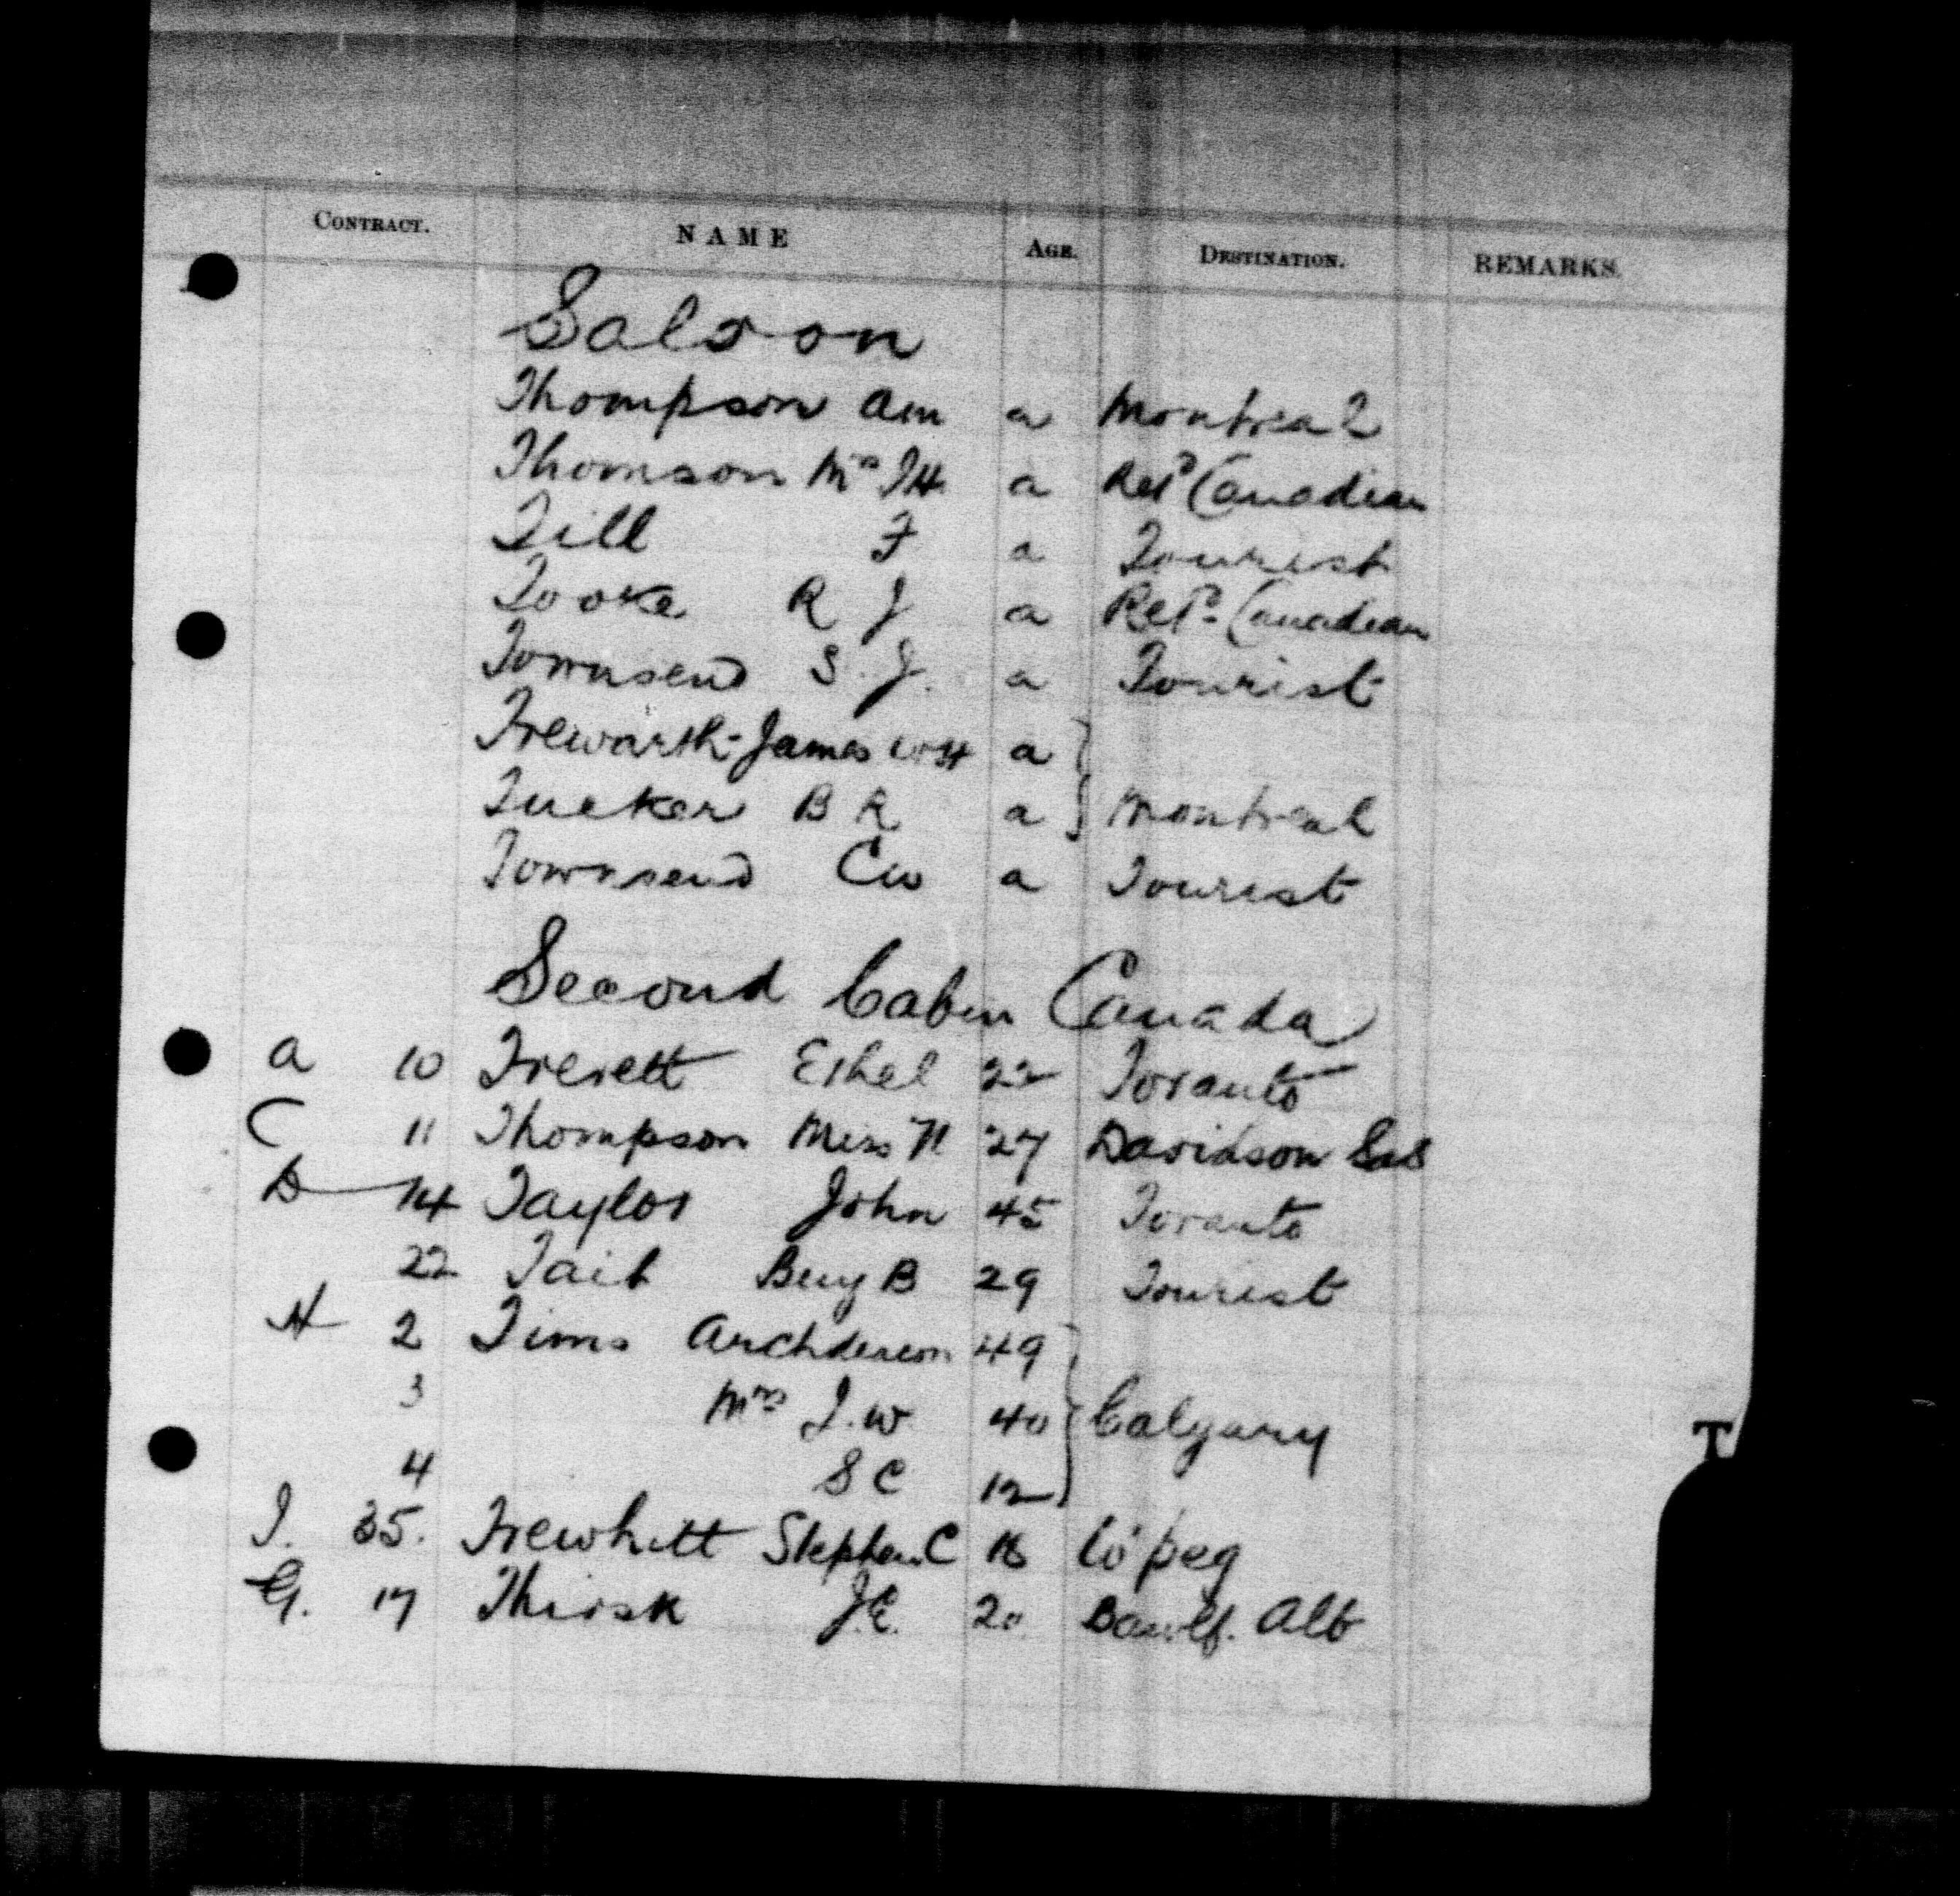 CONTRACT. NAME AGE. DESTINATION. REMARKS.
Saloon
Thompson AM a Montreal
Thomson Mrs JH a Retd Canadian
Till F a Tourist
Tooke R J a Retd Canadian
Townsend S. J. a Tourist
Trewarth-James WH a }
Tucker B R a } Montreal
Townsend CW a Tourist
Second Cabin Canada
A 10 Treveett Ethel 22 Toronto
C 11 Thompson Miss N 27 Davidson Sas
D 14 Taylor John 45 Toronto
22 Tait Benj B 29 Tourist
H 2 Tims Archdeacon 49
3 Mrs J.W 40 } Calgary
4 S C 12
I. 35. Trewhitt Stephen C 18 W'peg
G. 17 Thirsk J.E. 20 Bawlf. Alb
T